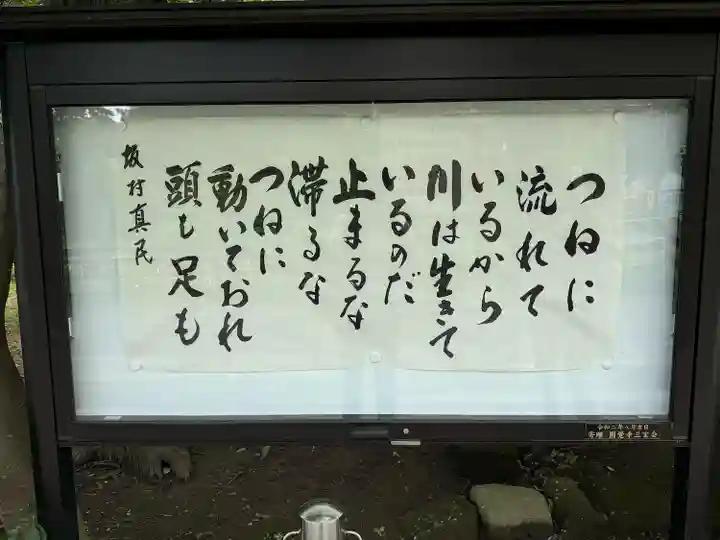 つねに
流れて
いるから
川は生きて
いるのだ
止まるな
滞るな
つねに
動いておれ
頭も足も
坂村真民
令和二年八月吉日
寄贈 圓覚寺三宝会